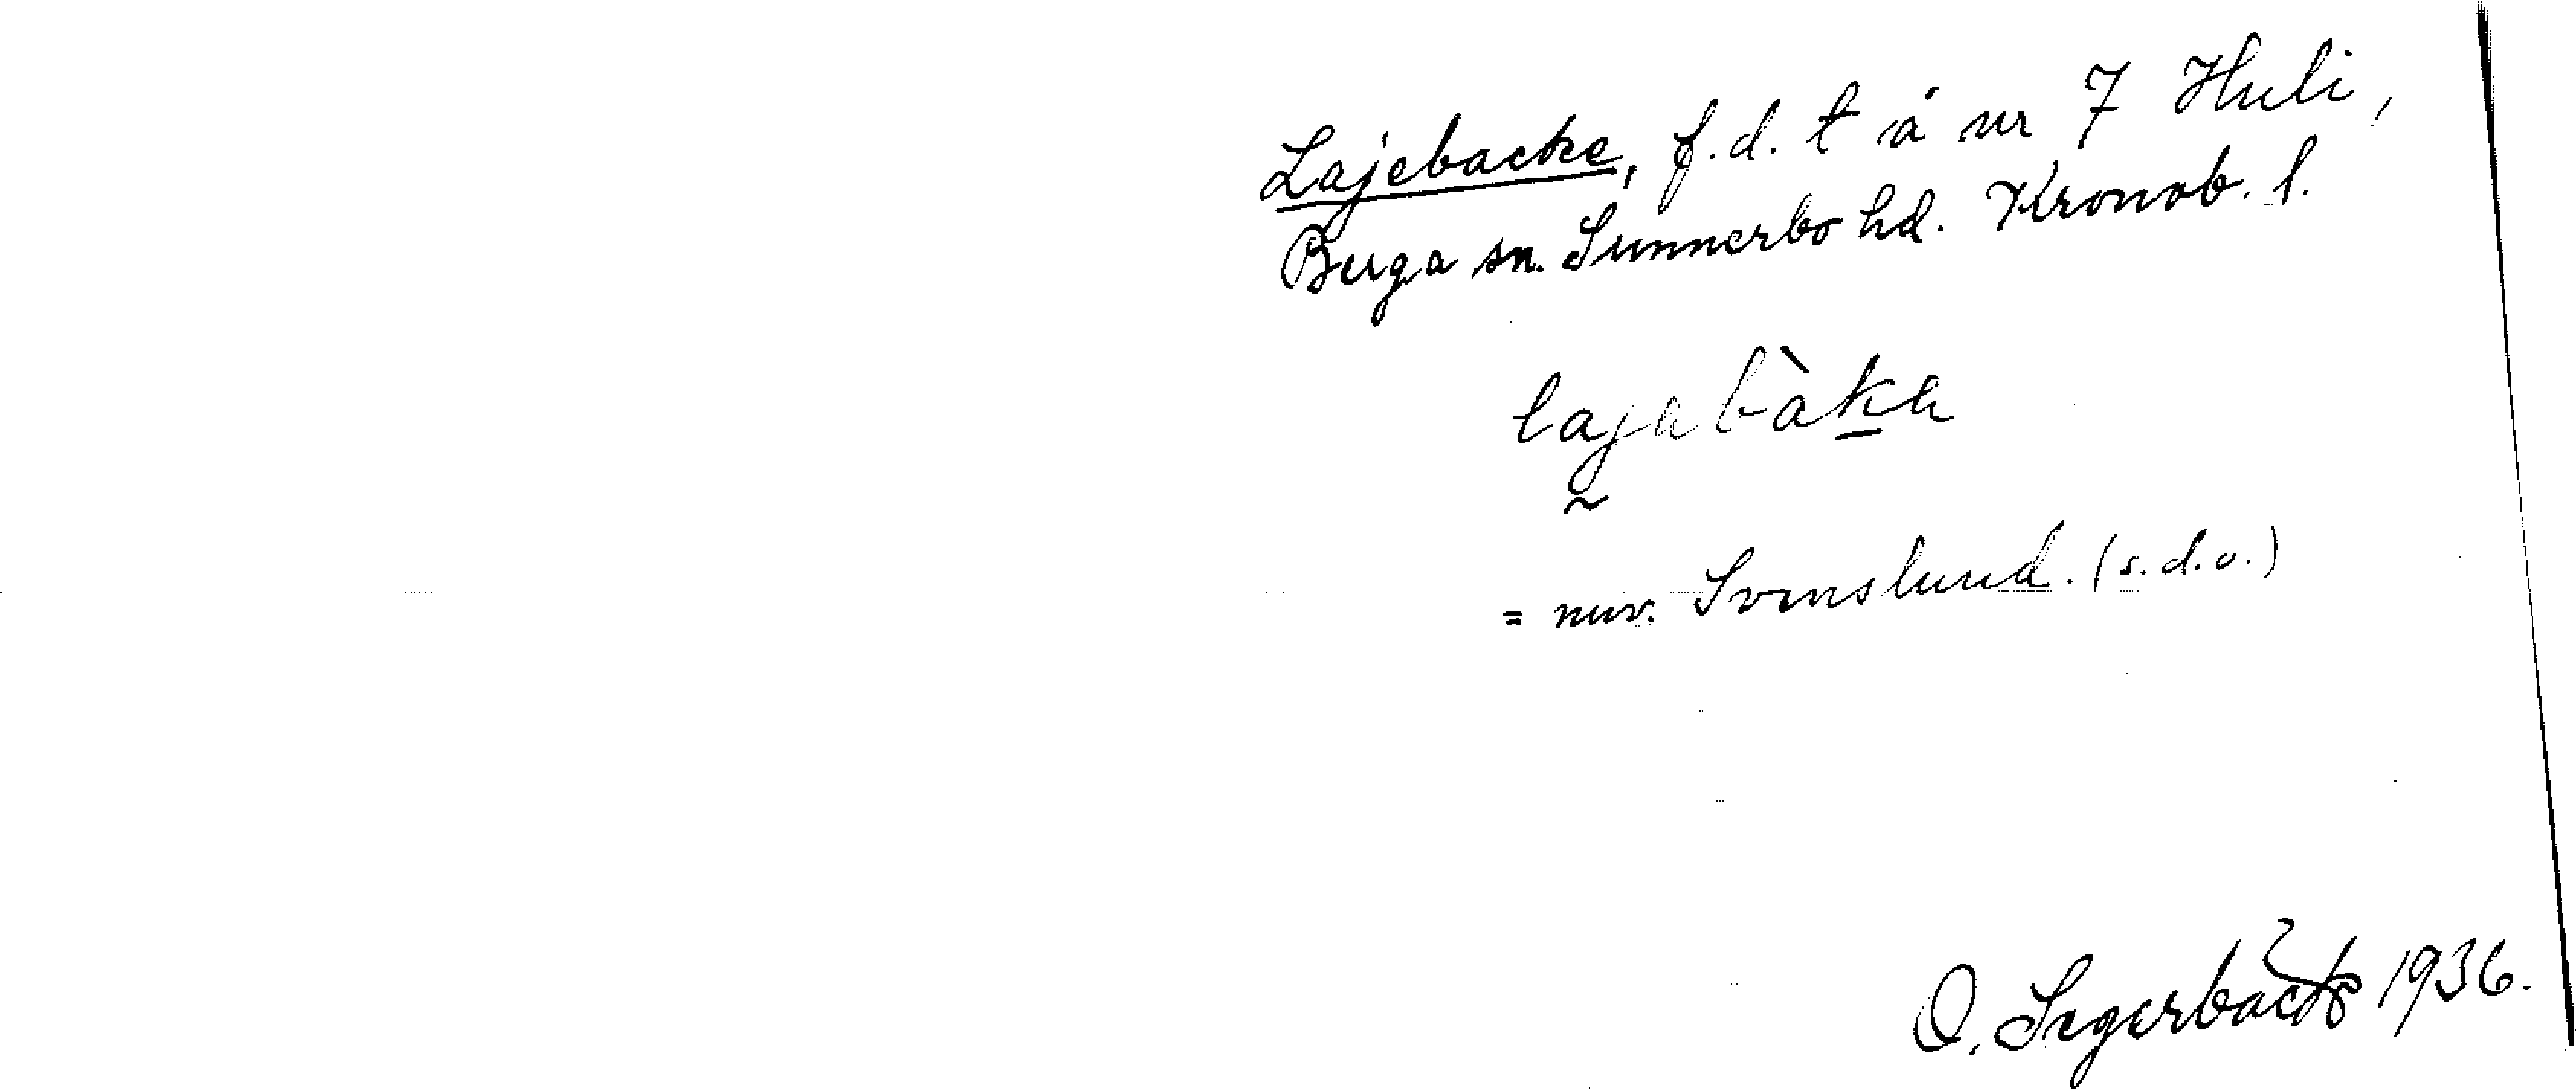 Lajebacke, f.d. t å nr 7 Huli,
Berga sn. Sunnerbo hd. Kronob. l.
lajabàka
= nuv. Svenslund. (s.d.o.)
O. Segerbäck 1936.